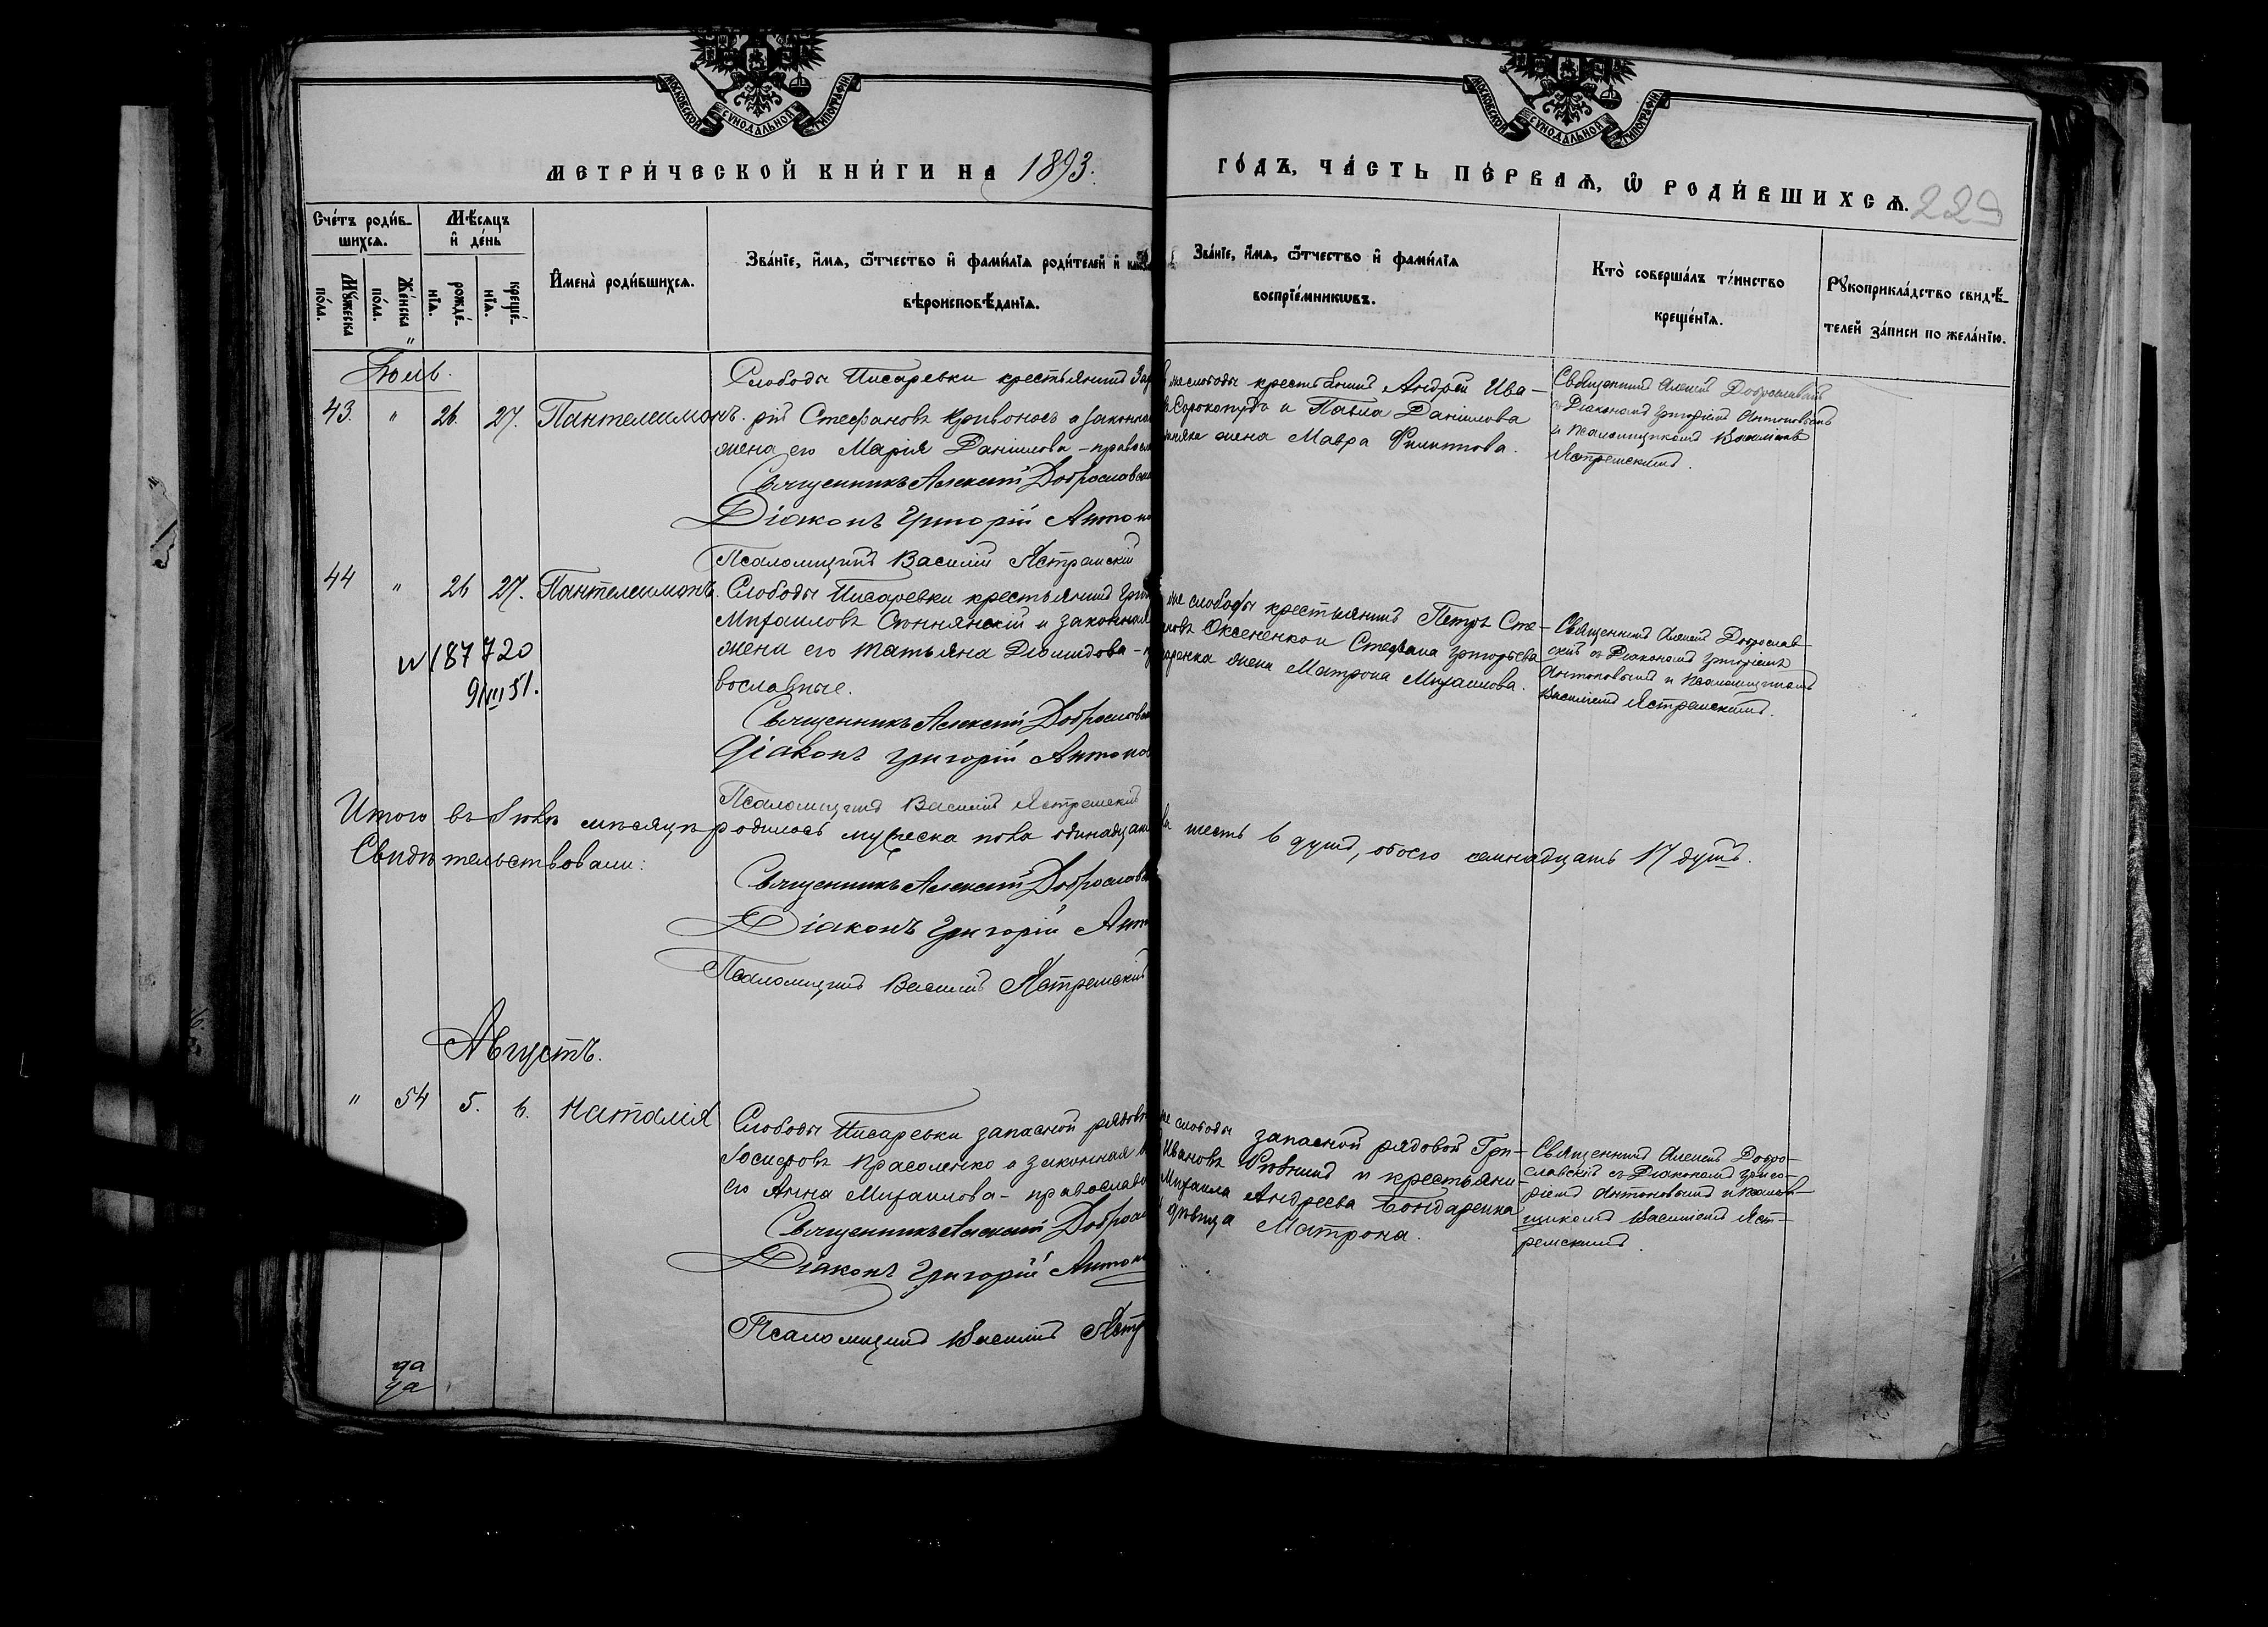 МОСКОВСКОЙ СѴНОДАЛЬНОЙ ТИПОГРАФІИ
МОСКОВСКОЙ СѴНОДАЛЬНОЙ ТИПОГРАФІИ
МЕТРИ́ЧЕСКОЙ КНИ́ГИ НА 1893.
ГО́ДЪ, ЧА́СТЬ ПЕ́РВАѦ, Ѡ҆ РОДИ́ВШИХСѦ. 229
Сче́тъ роди́в-
шихсѧ.
Мѣ́сѧцъ
и҆ де́нь
Мꙋ́жеска
по́ла.
Же́нска
по́ла.
рожде́-
нїѧ.
креще́-
нїѧ.
И҆мена̀ роди́вшихсѧ.
Зва́нїе, и҆́мѧ, ѻ҆́тчество и҆ фами́лїѧ роди́телей и҆
вѣроисповѣ́данїѧ.
Зва́нїе, и҆́мѧ, ѻ҆́тчество и҆ фами́лїѧ
воспрїе́мникѡвъ.
Кто̀ соверша́лъ та́инство
креще́нїѧ.
Рꙋкоприкла́дство свидѣ́-
телей за́писи по жела́нїю.
Іюль.
43. " 26. 27. Пантелеимонъ.
Слободы Писаревки крестьянинъ Заха
рій Стефановъ Кривоносъ и законная
жена его Марія Даніилова - правосла
Священникъ Алексій Доброславск
Діаконъ Григорій Антоно
Псаломщикъ Василій Ястремскій
же слободы крестьянинъ Андрей Ива-
Сорокопудъ и Павла Даніилова
жена Мавра Филиппова.
Священникъ Алексій Доброславскій
съ Діакономъ Григоріемъ Антоновымъ
и Псаломщикомъ Василіемъ
Ястремскимъ.
44 " 26 27. Пантелеимонъ.
N 187720
9/III 51.
Слободы Писаревки крестьянинъ Григ
Михаиловъ Сюннянскій и законная
жена его Татьяна Діомидова - пра
вославные.
Священникъ Алексій Доброславск
Діаконъ Григорій Антонов
Псаломщикъ Василій Ястремскій
же слободы крестьянинъ Петръ Сте-
новъ Оксененко и Стефана Григорьева
жена Матрона Михаилова.
Священникъ Алексій Доброслав-
скій съ Діакономъ Григоріемъ
Антоновымъ и Псаломщикомъ
Василіемъ Ястремскимъ.
Итого въ Іюлѣ мѣсяцѣ родилось мужеска пола одинадцать
шесть 6 душъ, обоего семнадцать 17 душъ.
Свидѣтельствовали:
Священникъ Алексій Доброславск
Діаконъ Григорій Анто
Псаломщикъ Василій Ястремскій
Августъ.
" 54 5. 6. Наталія
Слободы Писаревки запасной рядовой
Іосифовъ Красоленко и законная
его Анна Михаилова - православн
Священникъ Алексій Доброслав
Діаконъ Григорій Антоно
Псаломщикъ Василій Ястр
же слободы запасной рядовой Гри-
Ивановъ и крестьяни-
Михаила Андреева Бондаренка
дѣвица Матрона.
Священникъ Алексій Добро-
славскій съ Діакономъ Григо-
ріемъ Антоновымъ и Псалом-
щикомъ Василіемъ Яст-
ремскимъ.